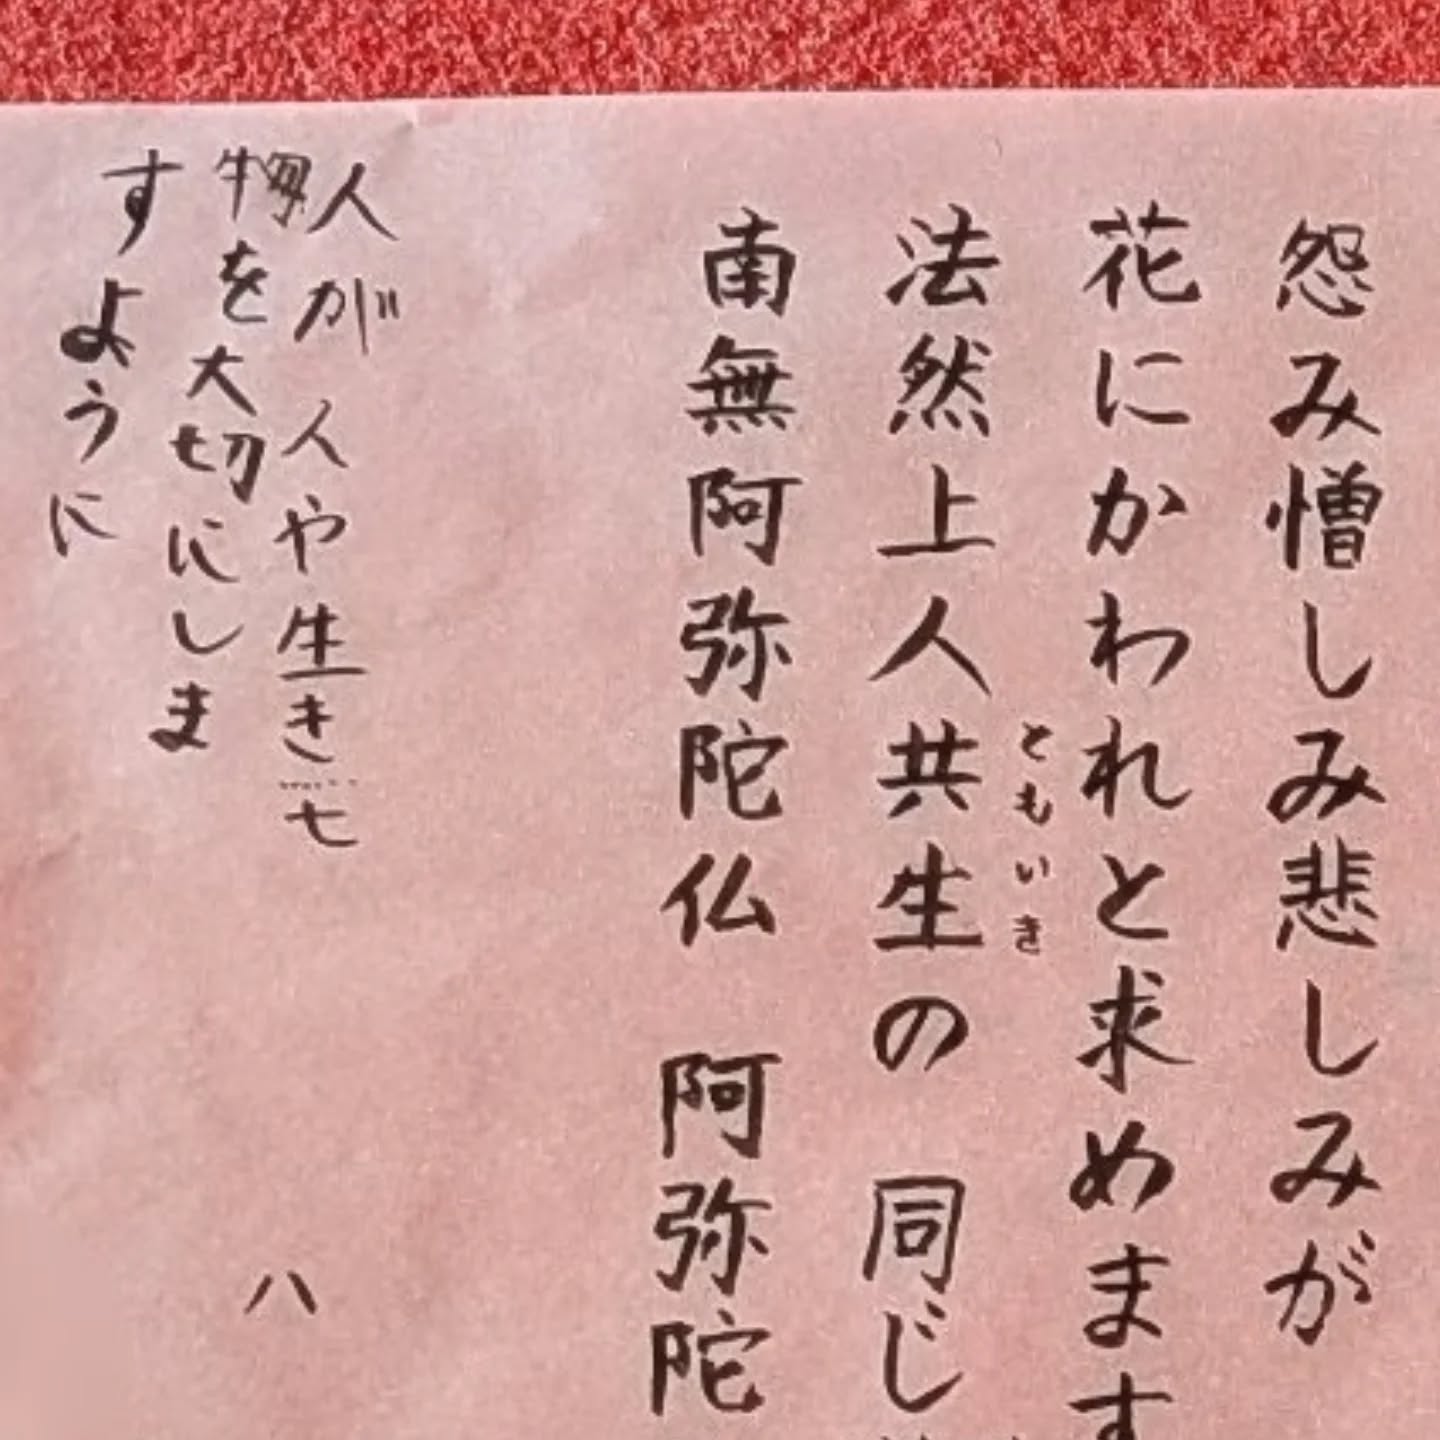 怨み憎しみ悲しみが
花にかわれと求めます
ともいき
法然上人共生の 同じ
南無阿弥陀仏 阿弥陀
人が人や生き
物を大切にしま
すように
七
八